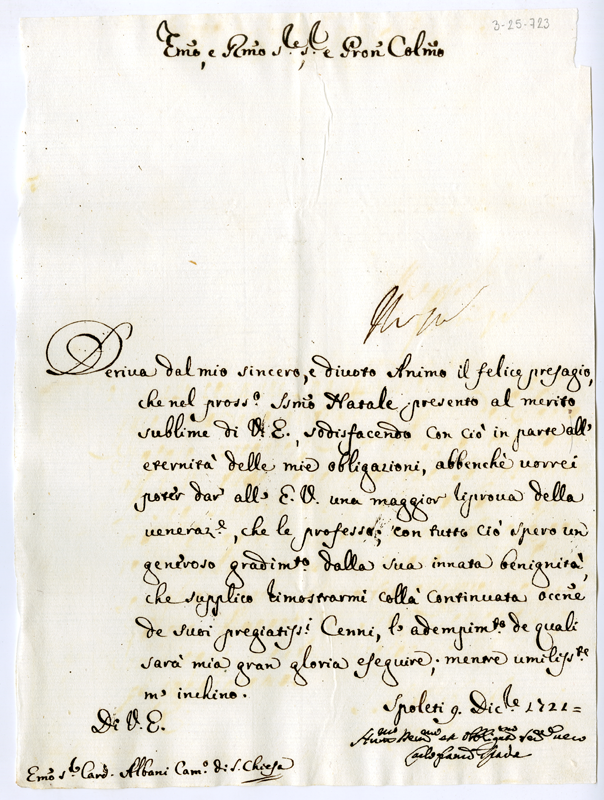 3-25-723
Emo, e Rmo Sre, Sre e Pron Colmo
Deriva dal mio sincero, e divoto Animo il felice presagio,
che nel pross.o Ssmo Natale presento al merito
sublime di V. E., sodisfacendo con ciò in parte all'
eternità delle mie obligazioni, abbenchè vorrei
poter dar all' E. V. una maggior riprova della
veneraz.e, che le professo; con tutto ciò spero un
generoso gradim.to dalla sua innata benignità,
che supplico rimostrarmi collà continuata occne
de suoi pregiatiss.i Cenni, l' adempim.to de quali
sarà mia gran gloria eseguire; mentre umiliss.te
m' inchino.
Spoleti 9. Dic.re 1721 =
Di V. E.
Emo Sr Card. Albani Cam.o di S. Chiesa